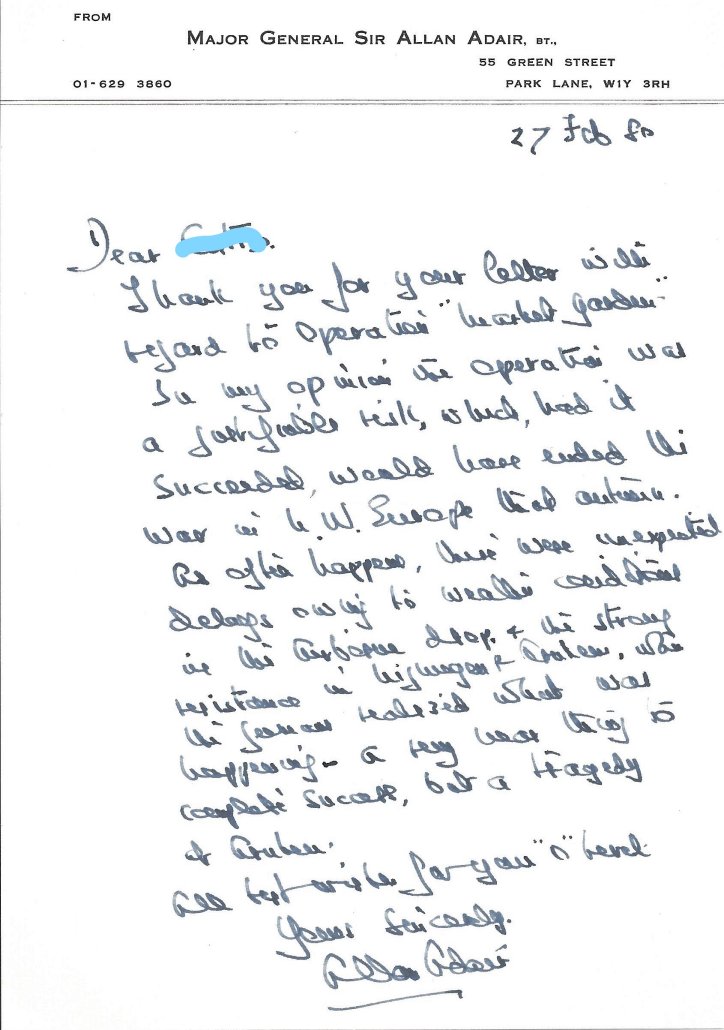 FROM
MAJOR GENERAL SIR ALLAN ADAIR, BT.,
55 GREEN STREET
01-629 3860
PARK LANE, W1Y 3RH
27 Feb 80
Dear
Thank you for your letter with
regard to Operation "Market Garden"
In my opinion the operation was
a justifiable risk, which, had it
succeeded, would have ended the
war in N.W. Europe that autumn.
As often happens, there were unexpected
delays owing to weather conditions
in the Airborne drop, & the strong
resistance in Nijmegen & Arnhem, when
the German realized what was
happening - a very near thing to
complete success, but a tragedy
at Arnhem.
All best wishes for your "O" Level
Yours sincerely.
Allan Adair